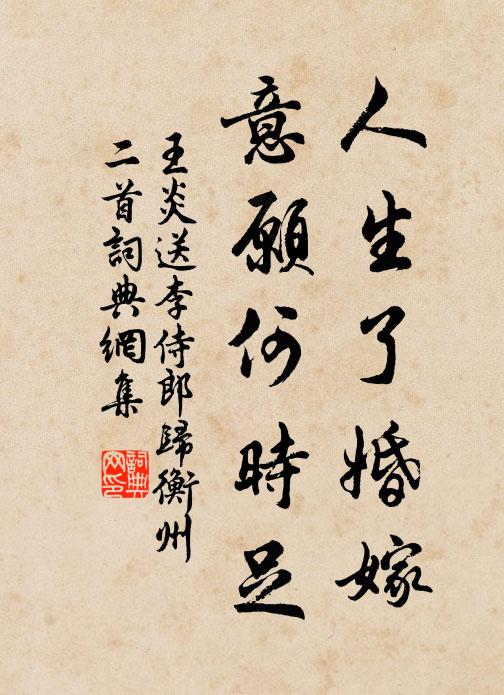 人生了婚嫁
意願何時足
王炎送李侍郎歸衡州
二首詞典網集
詞典
网印